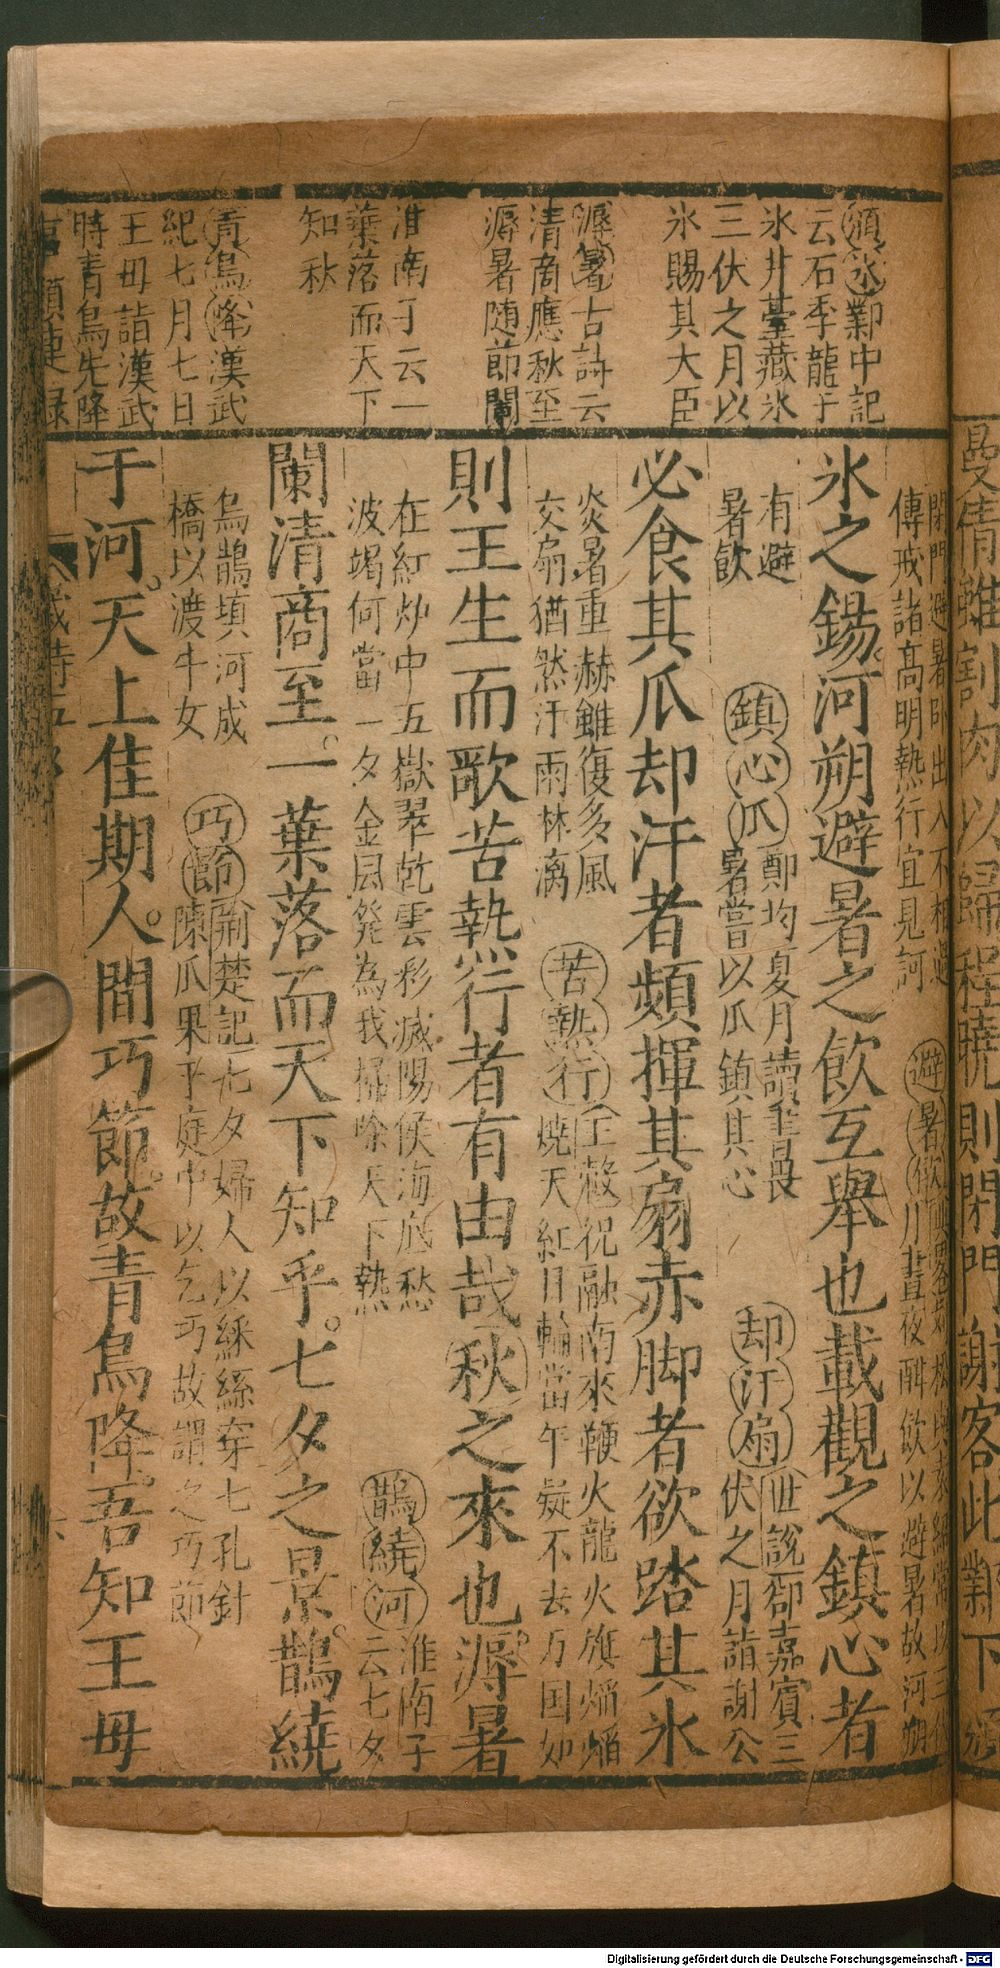 頒氷鄴中記
云石季龍于
氷井臺藏氷
三伏之月以
氷賜其大臣
溽暑古詩云
清商應秋至
溽暑随節闌
淮南子云一
葉落而天下
知秋
青鳥降漢武
紀七月七日
王母詣漢武
時青鳥先降
曼倩雖割肉以歸程曉則閉門謝客此鄴下
閉門避暑卧出入不相過
傳戒諸髙明熱行宜見訶
避暑飲
川晝夜酣飲以避暑故河朔
氷之錫河朔避暑之飲互舉也載觀之鎮心者
有避
暑飲
鎮心瓜鄭均夏月讀書畏
暑嘗以瓜鎮其心
却汗扇世說郤嘉賓三
伏之月詣謝公
必食其瓜却汗者頻揮其扇赤脚者欲踏其氷
炎暑重赫雖復多風
交扇猶然汗雨林漓
苦熱行王轂祝融南來鞭火龍火旗焰焰
燒天紅日輪當午凝不去万国如
則王生而歌苦熱行者有由哉秋之來也溽暑
在紅炉中五嶽翠乾雲彩滅陽侯海底愁
波竭何當一夕金凨発為我掃除天下熱
鵲繞河淮南子
云七夕
闌清商至。一葉落而天下知乎。七夕之景。鵲繞
烏鵲填河成
橋以渡牛女
巧節荊楚記七夕婦人以綵絲穿七孔針
陳瓜果于庭中以乞巧故謂之巧節
于河。天上佳期人。間巧節。故青鳥降。吾知王母
歲時
Digitalisierung gefördert durch die Deutsche Forschungsgemeinschaft - DFG